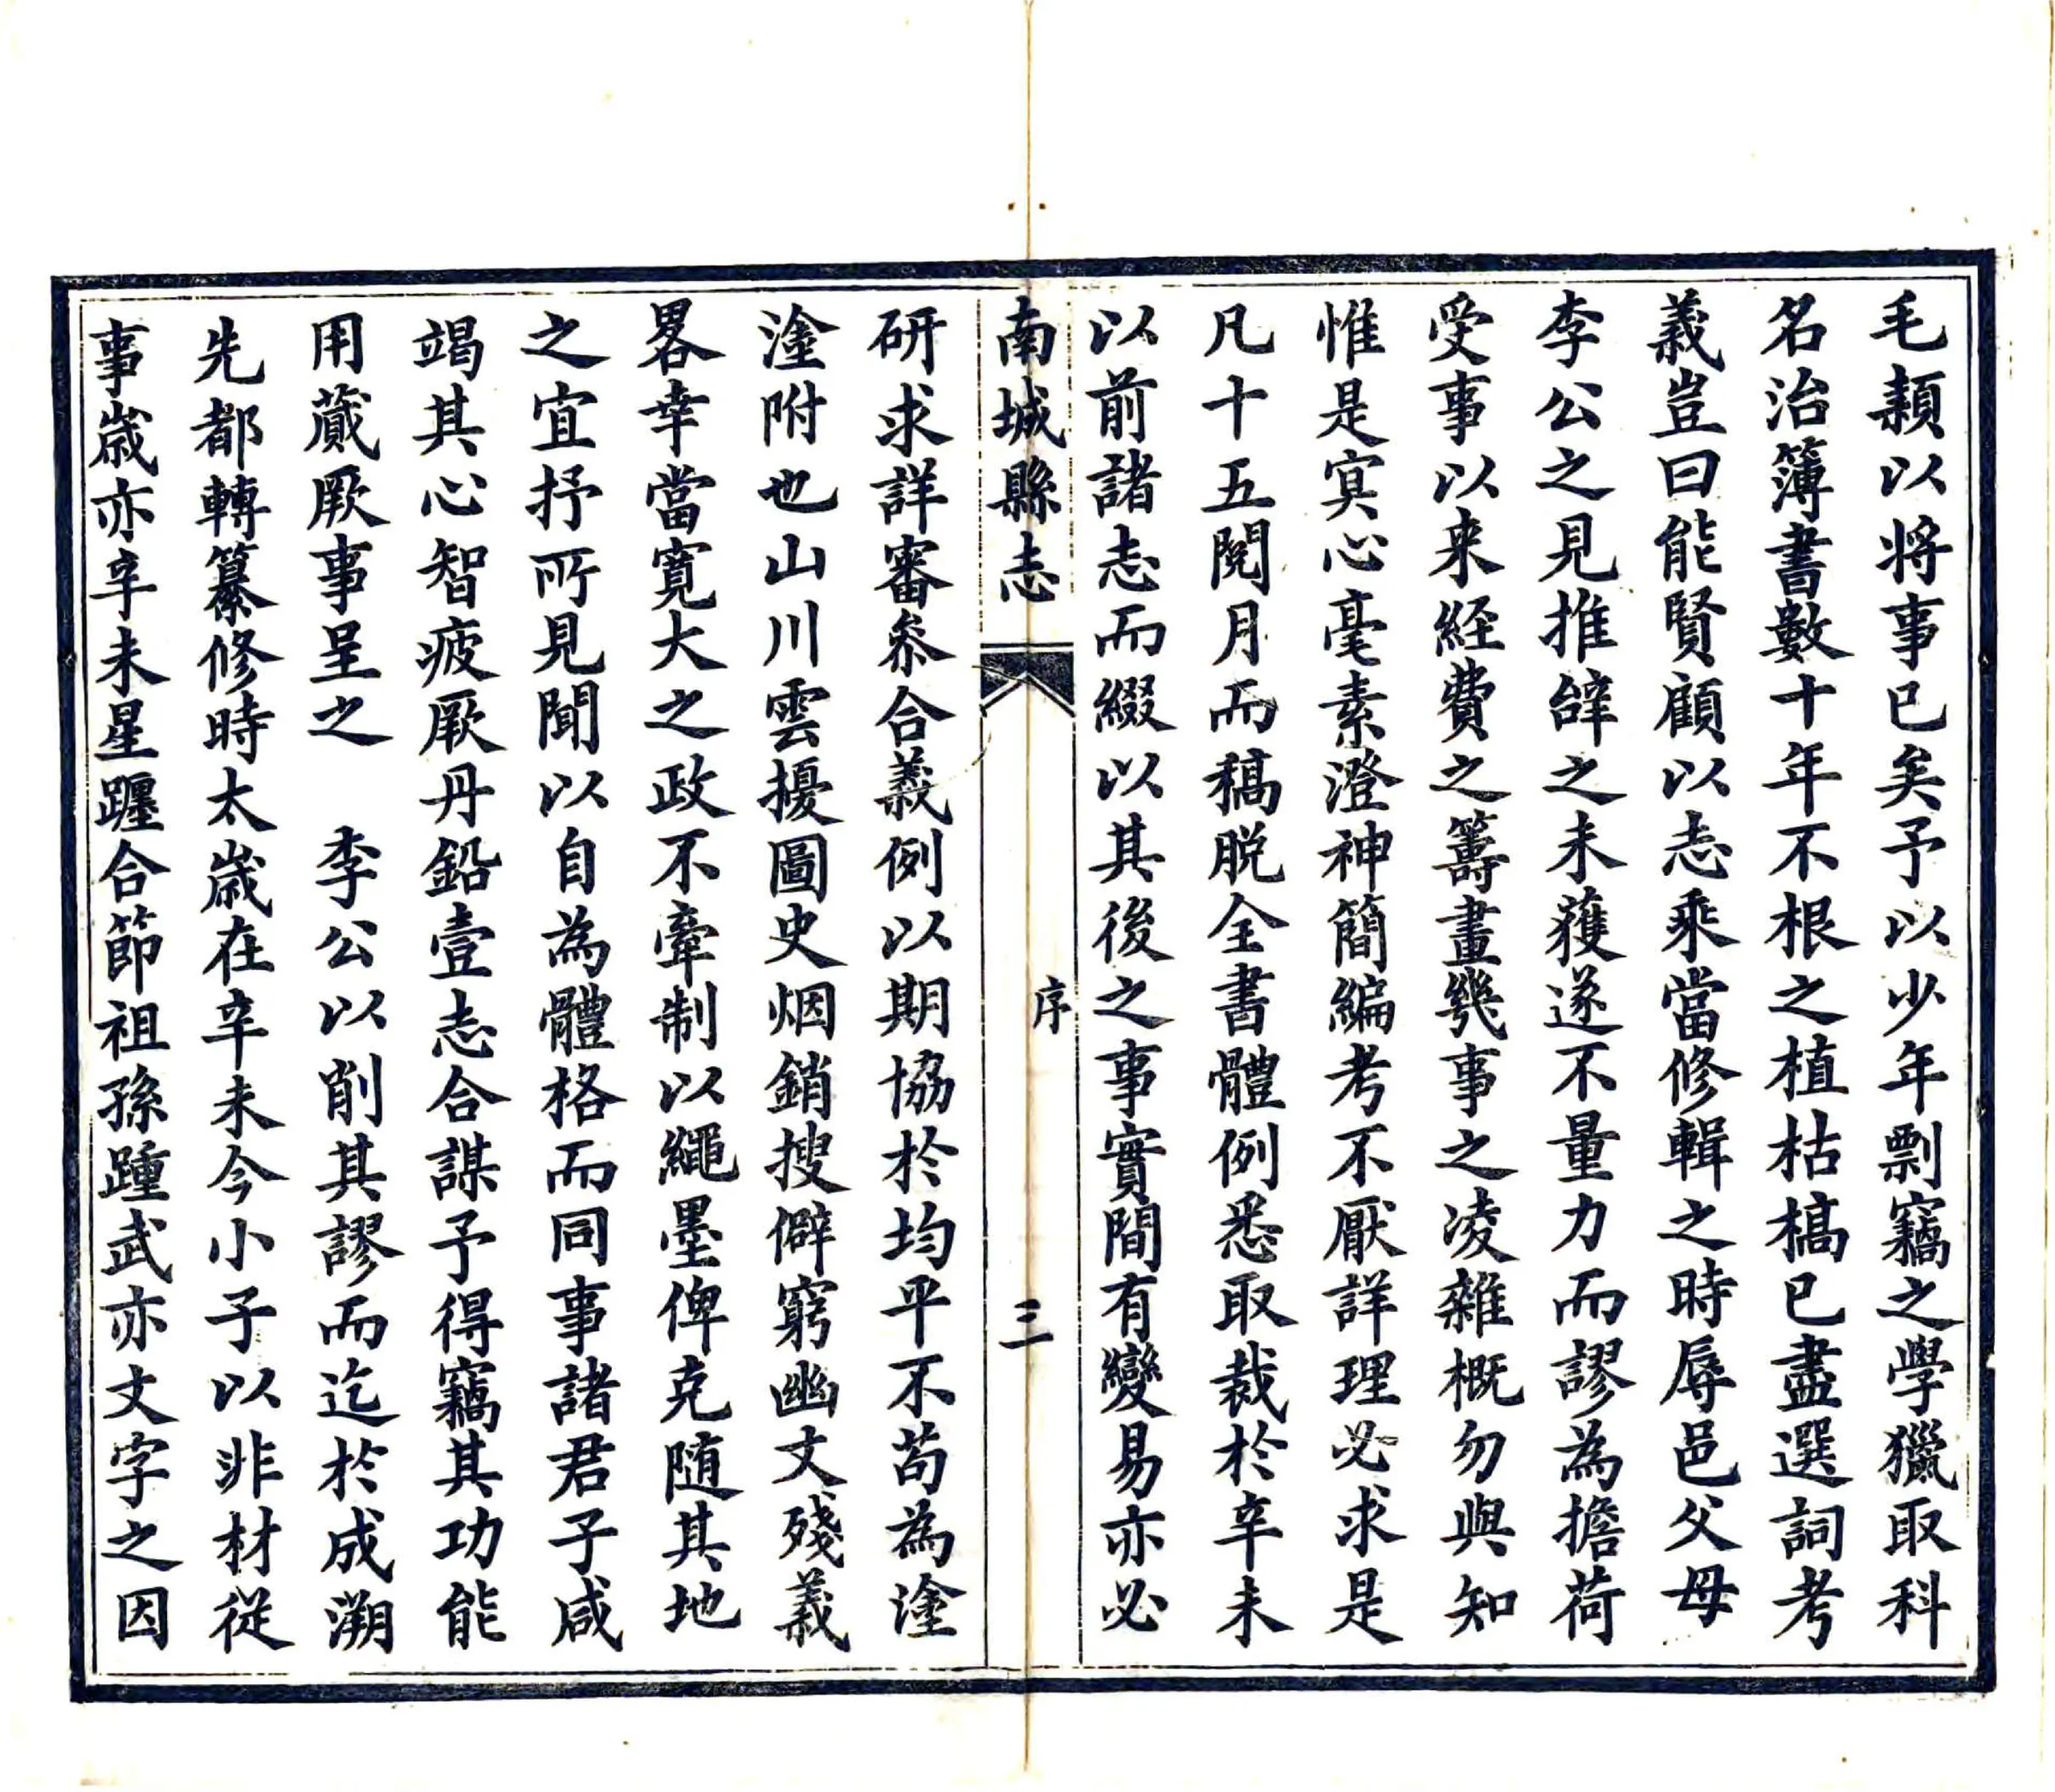 毛頴以將事已矣予以少年剽竊之學獵取科
名治簿書數十年不根之植枯槁已盡選詞考
義豈曰能賢顧以志乘當修輯之時辱邑父母
李公之見推辭之未獲遂不量力而謬為擔荷
受事以来経費之籌畫幾事之凌雜概勿與知
惟是冥心毫素澄神簡編考不厭詳理必求是
凡十五閱月而稿脱全書體例悉取裁於辛未
以前諸志而綴以其後之事實間有變易亦必
南城縣志
序
三
研求詳審叅合義例以期協於均平不苟為塗
塗附也山川雲擾圖史烟銷搜僻窮幽文殘義
畧幸當寬大之政不牽制以繩墨俾克随其地
之宜抒所見聞以自為體格而同事諸君子咸
竭其心智疲厥丹鉛壹志合謀予得竊其功能
用蕆厥事呈之　李公以削其謬而迄於成溯
先都轉纂修時太歲在辛未今小子以非材從
事歲亦辛未星躔合節祖孫踵武亦文字之因